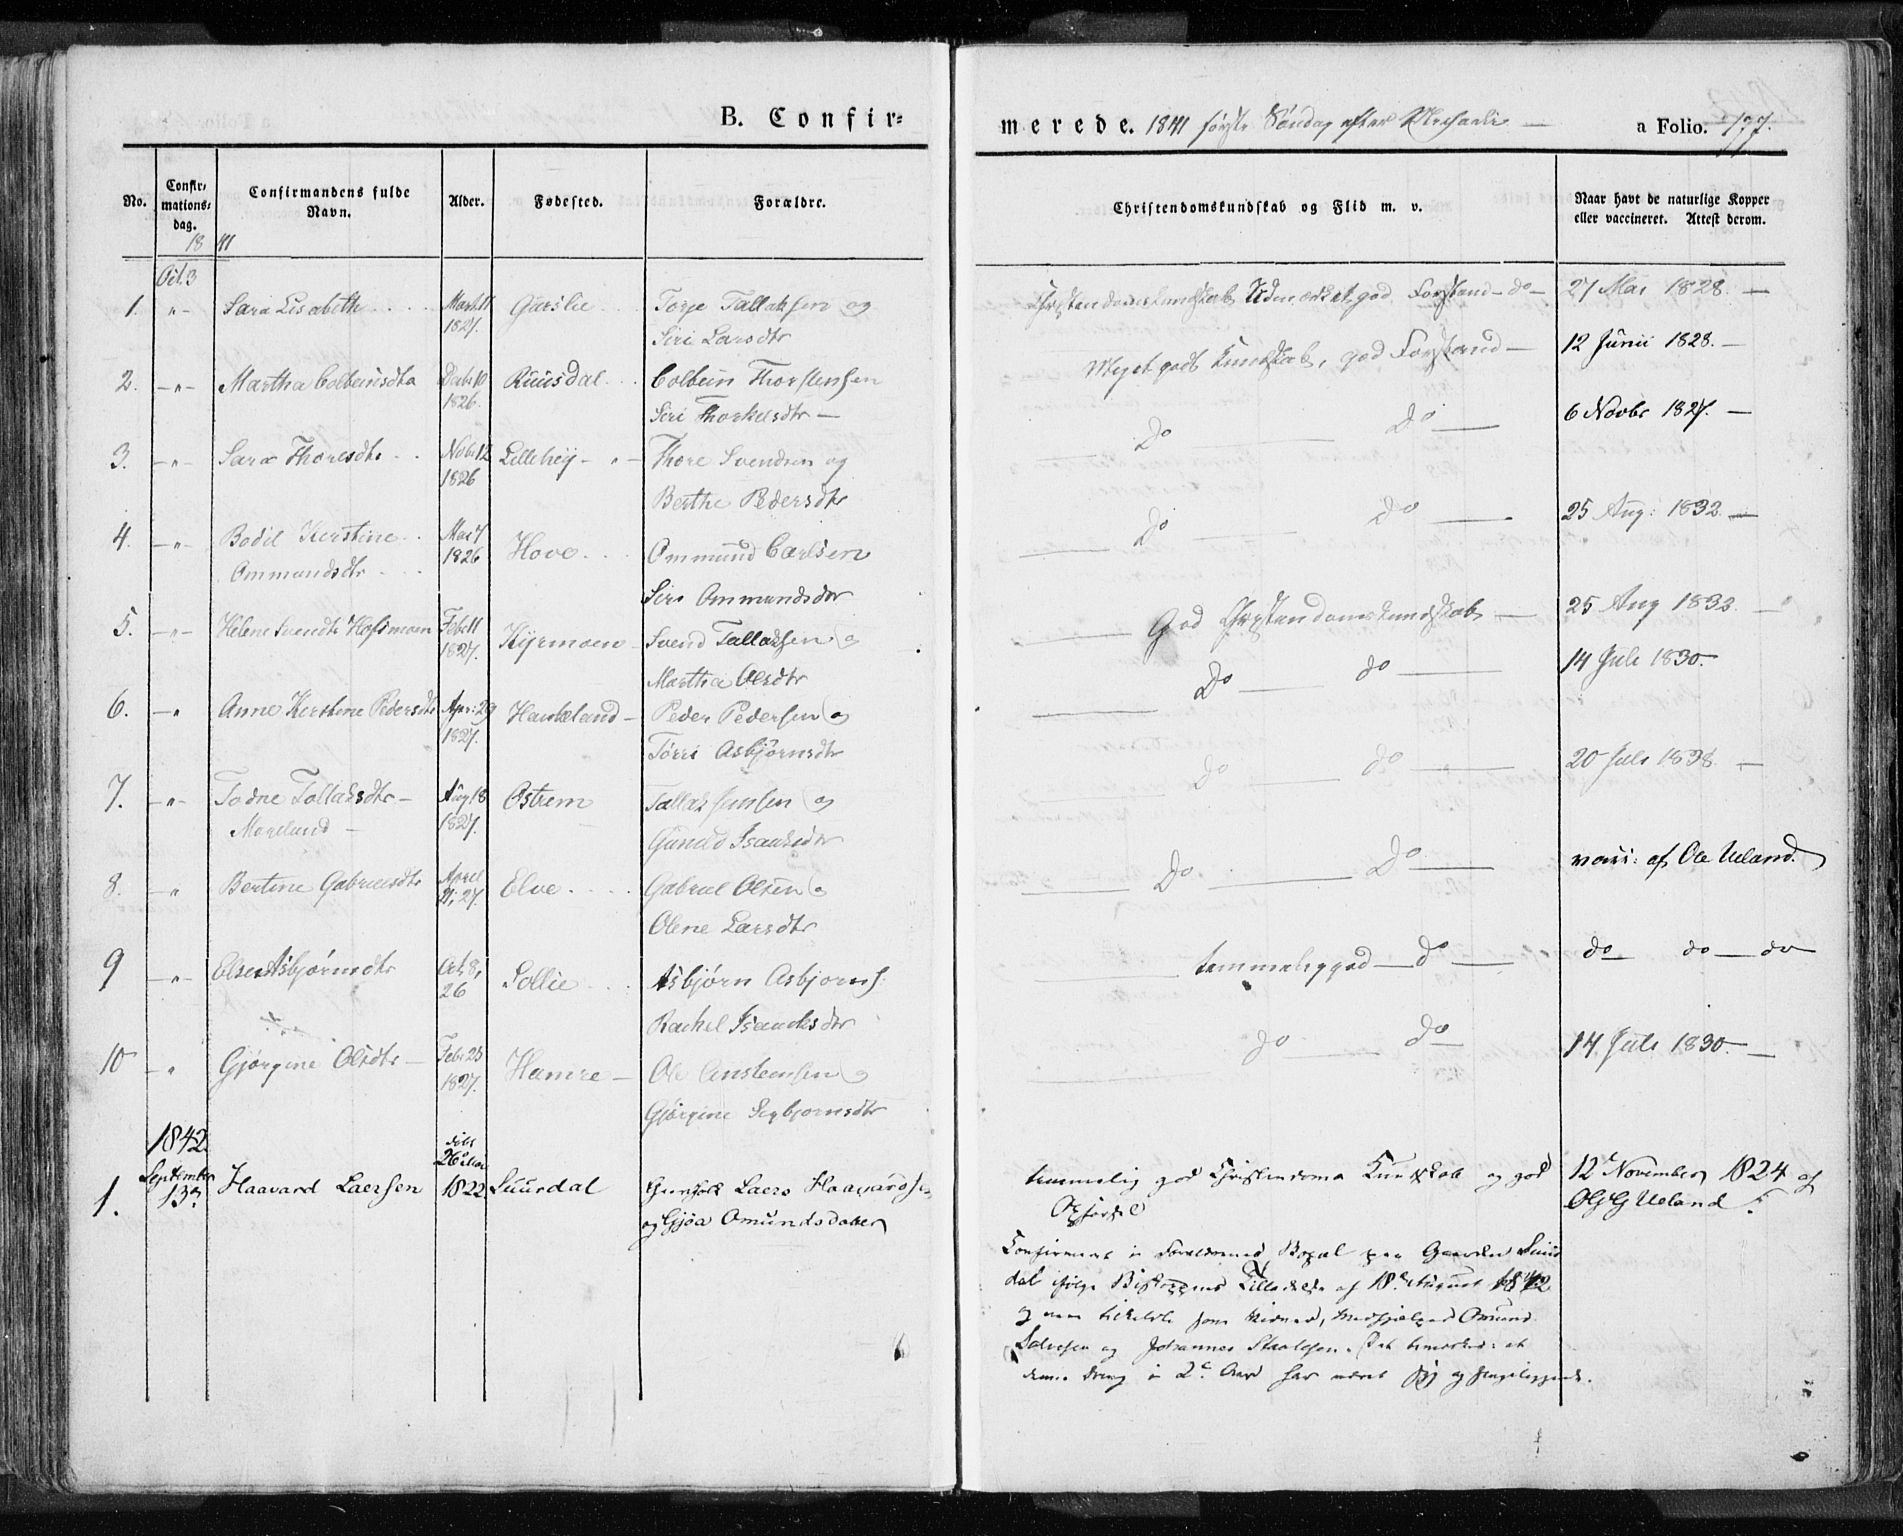 B. Confir=
merede. 1841 første Søndag efter Michaeli —
a Folio. 177.
No.
Confir-
mations-
dag.
Confirmandens fulde
Navn.
Alder.
Fødested.
Forældre.
Christendomskundskab og Flid m. v.
Naar havt de naturlige Kopper
eller vaccineret. Attest derom.
1841
Oct. 3
1. -"- Sara Lisabeth Mart. 11 Torje Tallaksen og
1827. Siri Larsdtr
Christendomskundskab Udmærket god Forstand - do - 27 Mai 1828. —
2. -"- Martha Colbeinsdtr Decbr 10 Ruusdal Colbein Thorstensen
1826. Siri Thorkelsdtr —
Meget godt Kundskab, god Forstand — 12 Junii 1828. —
3. -"- Sara Thoresdtr Novbr 12 Lillehey - " - Thore Svendsen og
1826 Berthe Pedersdtr
Do — Do — 6 Novbr 1827. —
4. -"- Bodil Kirstine Mai 7 Hove Ommund Carlsen
Ommundsdtr 1826 Siri Ommundsdtr
Do — Do — 25 Aug: 1832. —
5. -"- Helene Svendtr Hofsmoen Febr 11 Kyrmoen Svend Tallaksen og
1827. Martha Olsdtr
God Christendomskundskab — 25 Aug 1832. —
6. -"- Anne Kirstine Pedersdtr Apr: 29 Haukeland — Peder Pedersen og
1827. Tørri Asbjørnsdtr
Do — do — 14 Juli 1830.
7. -"- Todne Tollaksdtr — Aug 18 Ostrem Tallak Jensen og
Moreland — 1827. Gunild Isaksdtr
Do — do — 20 Juli 1838. —
8. " Bertine Gabrielsdtr April Elve Gabriel Olsen og
27. Olene Larsdtr
Do — Do — vaci: af Ole Ueland.
9 -"- Else Asbjørnsdtr Oct. 8, Sollie Asbjørn Asbjorns:
26 Rachel Isaachsdtr
temmelig god — do — do — do — do
10 -"- Gjørgine Olsdtr — Febr 25 Hamre — Ole Anstensen og
1827. Gjørgine Sigbjornsdtr
do — do — 14. Juli 1830. —
1842.
September
13de
1. Haavard Laersen født
26 Mai
1822 Suurdal Laers Haavardsen
og Gjøa Omundsdatter
temmelig god Christendoms Kundskab og god
Opførsel
12te November 1824 af
O G Ueland
Confirmeret i Forældrenes Bopæl paa Gaarden Suur
dal ifølge Biskoppens Tilladelse af 18de August 1842
og vare tilstede som Vidner, Medhjælper Omund
Salvesen og Johannes Staalesen. Det bemærkes: at
denne Dreng i 2de Aar har været syg og sengeliggende.